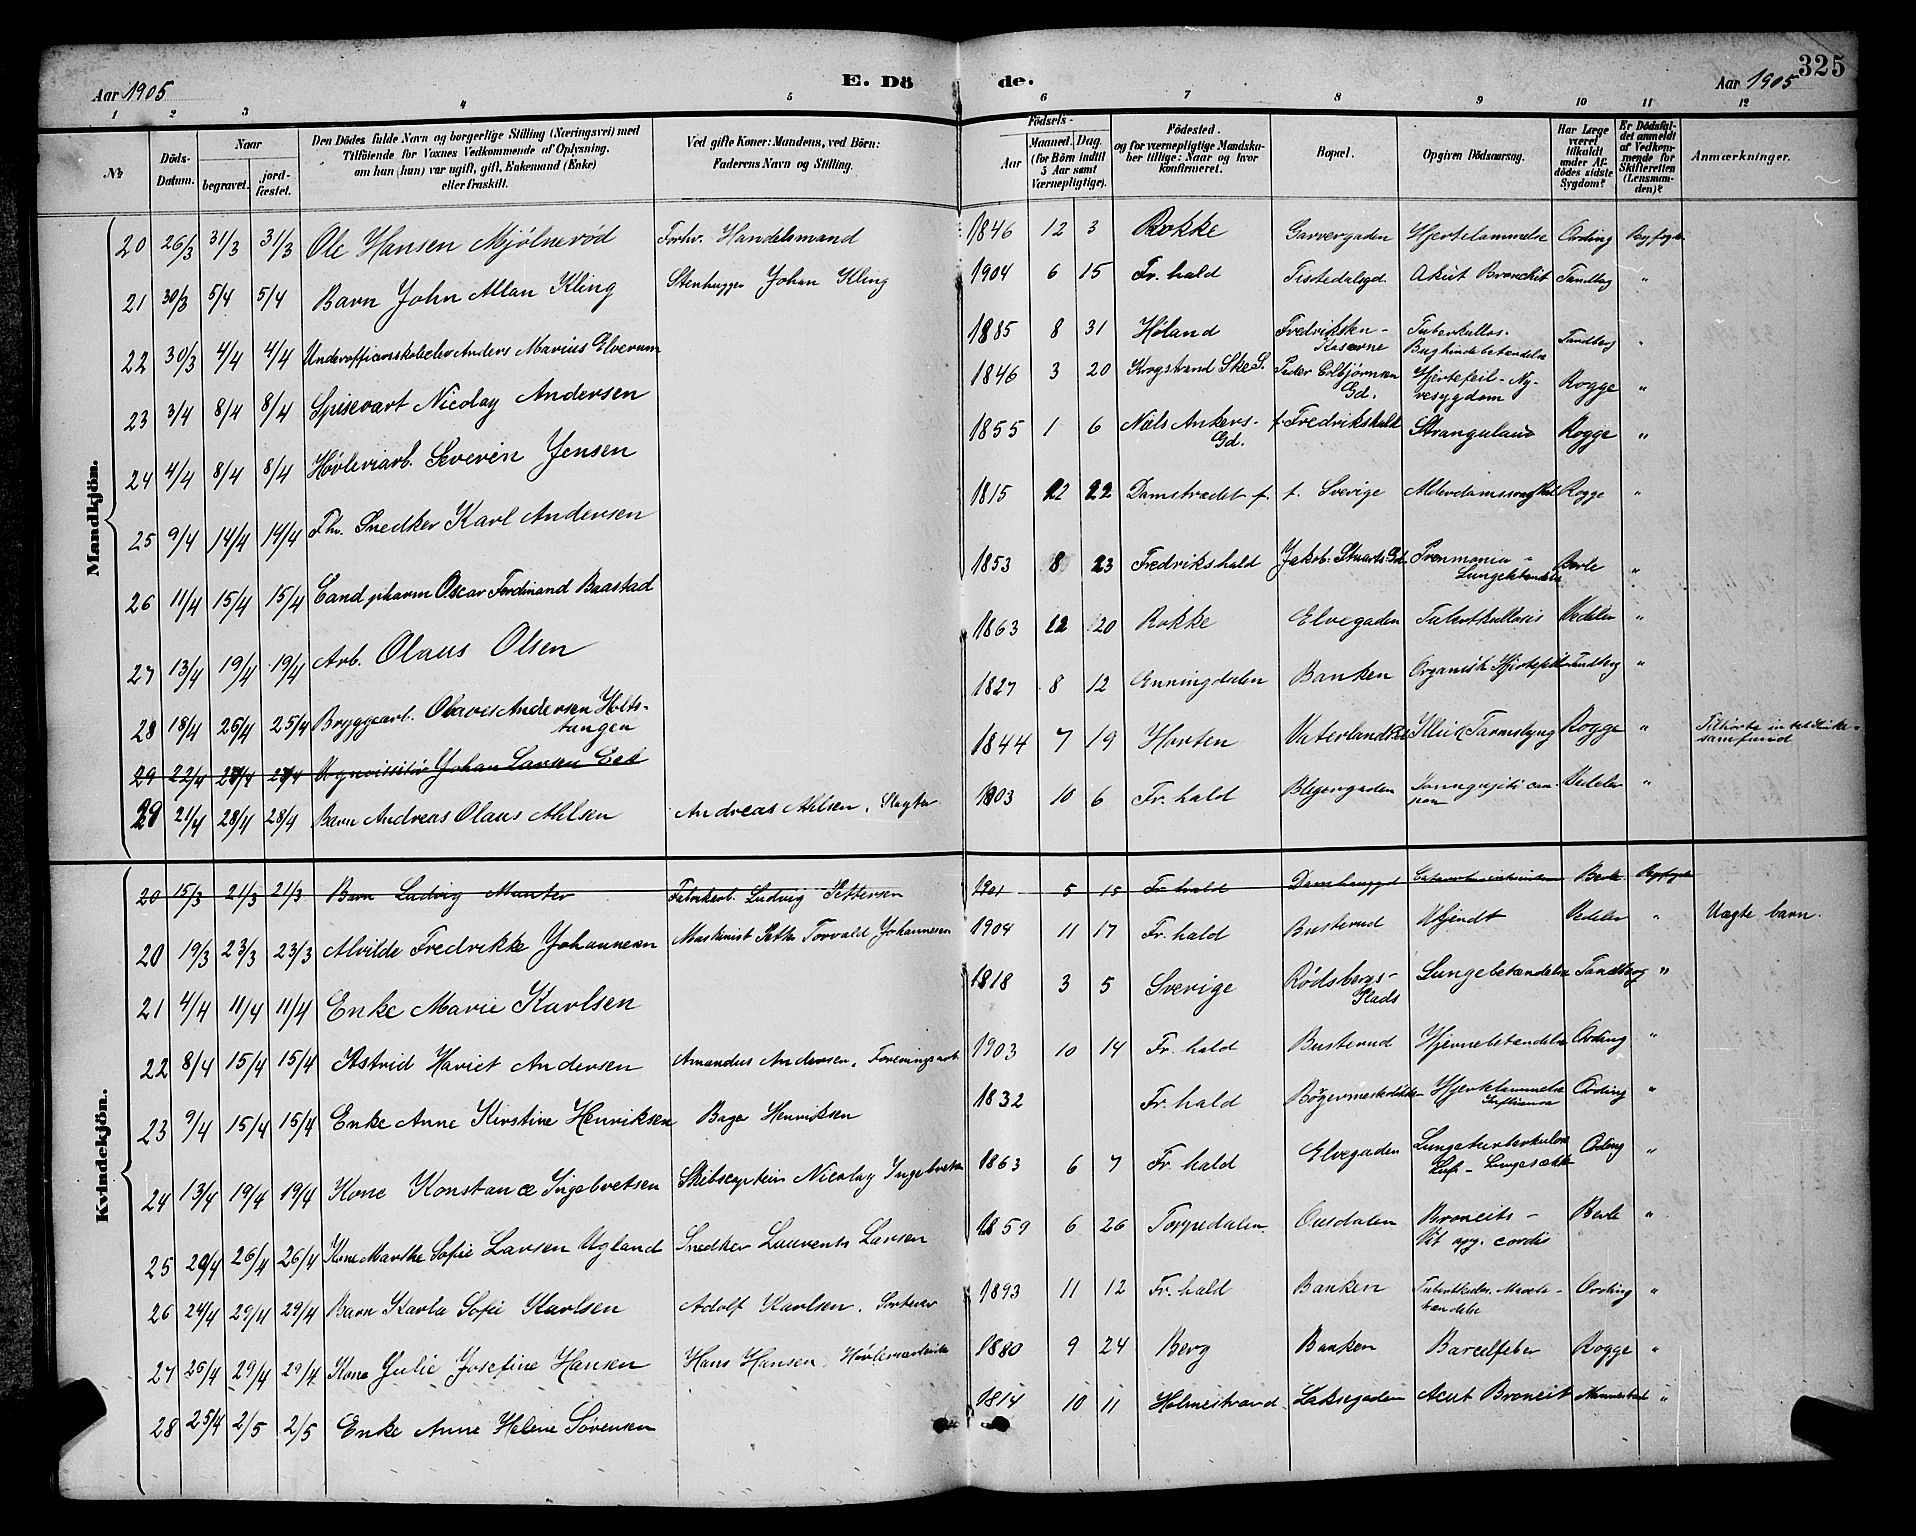 Aar 1905 E. Dö
de. Aar 1905 325
1 2 3 4 5 6 7 8 9 10 11 12
№ Döds-Datum. Naar begravet. jordfæstet. Den Dödes fulde Navn og borgerlige Stilling (Næringsvei) med Tilföiende for Voxnes Vedkommende af Oplysning, om han (hun) var ugift, gift, Enkemand (Enke) eller fraskilt. Ved gifte Koner: Mandens, ved Börn: Faderens Navn og Stilling. Födsels- Aar Maaned. Dag. (for Börn indtil 5 Aar samt Værnepligtige). Födested. og for værnepligtige Mandskaber tillige: Naar og hvor konfirmeret. Bopæl. Opgiven Dödsaarsag. Har Læge været tilkaldt under Afdödes sidste Sygdom? Er Dödsfaldet anmeldt af Vedkommende for Skifteretten (Lensmanden)? Anmærkninger.
Mandkjön.
20 26/3 31/3 31/3 Ole Hansen Mjølnerød Forhv. Handelsmand 1846 12 3 Rokke Garvergaden Hjertelammelse Ording Byfogde
21 30/3 5/4 5/4 Barn John Allan Kling Stenhugger Johan Kling 1904 6 15 Fr. hald Tistedalsgd. Akut Bronchit Tandberg "
22 30/3 4/4 4/4 Anders Marius Elverum 1885 8 31 Høland Fredriksten - Kaserne Tuberkulos- Bughindebetændelse Tandberg "
23 3/4 8/4 8/4 Spisevært Nicolay Andersen 1846 3 20 Krogstrand Peder Colbjørnsen Gd. Hjertefeil - Nyresygdom Rogge "
24 4/4 8/4 8/4 Høvleriarb. Severin Jensen 1855 1 6 Niels Ankers- Gd. f. Fredrikshald Strangulatio Rogge "
25 9/4 14/4 14/4 Fhv. Snedker Karl Andersen 1815 12 22 Damstrædet f. f. Sverige Rogge "
26 11/4 15/4 15/4 Cand. pharm Oscar Ferdinand Baastad 1853 8 23 Fredrikshald Jakob Stuarts Gd. Lungebetændelse Berle "
27 13/4 19/4 19/4 Arb. Olaus Olsen 1863 12 20 Rokke Elvegaden Tuberkulosis Vedeler "
28 18/4 26/4 25/4 Bryggearb. Olaves Andersen Holtstangen 1827 8 12 Enningdalen Banken Organisk Hjertefeil Tandberg "
29 22/4 27/4 27/4 Johan Larsen Eed 1844 7 19 Horten Rogge " samfund
29 21/4 28/4 28/4 Barn Andreas Olaus Ahlsen Andreas Ahlsen, Slagter 1903 10 6 Fr. hald Vedeler "
Kvindekjön.
20 15/3 21/3 21/3 Barn Ludvig Fabrikarb. Ludvig Pettersen 1901 5 15 Fr. hald Berle Byfogde
20 19/3 23/3 23/3 Alvilde Fredrikke Johannesen Maskinist Petter Torvald Johannesen 1904 11 17 Fr. hald Busterud Ukjendt Vedeler " Uægte barn.
21 4/4 11/4 11/4 Enke Marie Karlsen 1818 3 5 Sverige Rødsbergs- Plads Lungebetændelse Tandberg "
22 8/4 15/4 15/4 Astrid Hariet Andersen Amandus Andersen, Foreningsarb. 1903 10 14 Fr. hald Busterud Hjernebetændelse Ording "
23 9/4 15/4 15/4 Enke Anne Kirstine Henriksen Bager Henriksen 1832 Fr. hald Hjertelammelse Influensa Ording "
24 13/4 19/4 19/4 Kone Konstance Ingebretsen Skibscaptein Nicolay Ingebretsen 1863 6 7 Fr. hald Elvegaden Lungetuberkulose Ording "
25 20/4 26/4 26/4 Kone Marthe Sofie Larsen Ugland Snedker Laurents Larsen 1859 6 26 Torpedalen Ousdalen Broncits - Vit. org. cordis Berle "
26 24/4 29/4 29/4 Barn Karla Sofie Karlsen Adolf Karlsen, Sorterer 1893 11 12 Fr. hald Banken Ording "
27 26/4 29/4 29/4 Kone Julie Josefine Hansen Hans Hansen, Høvleriarbeider 1880 9 24 Berg Banken Barcelfeber Rogge "
28 25/4 2/5 2/5 Enke Anne Helene Sørensen 1814 10 11 Holmestrand Laksegaden Acut Broncit "